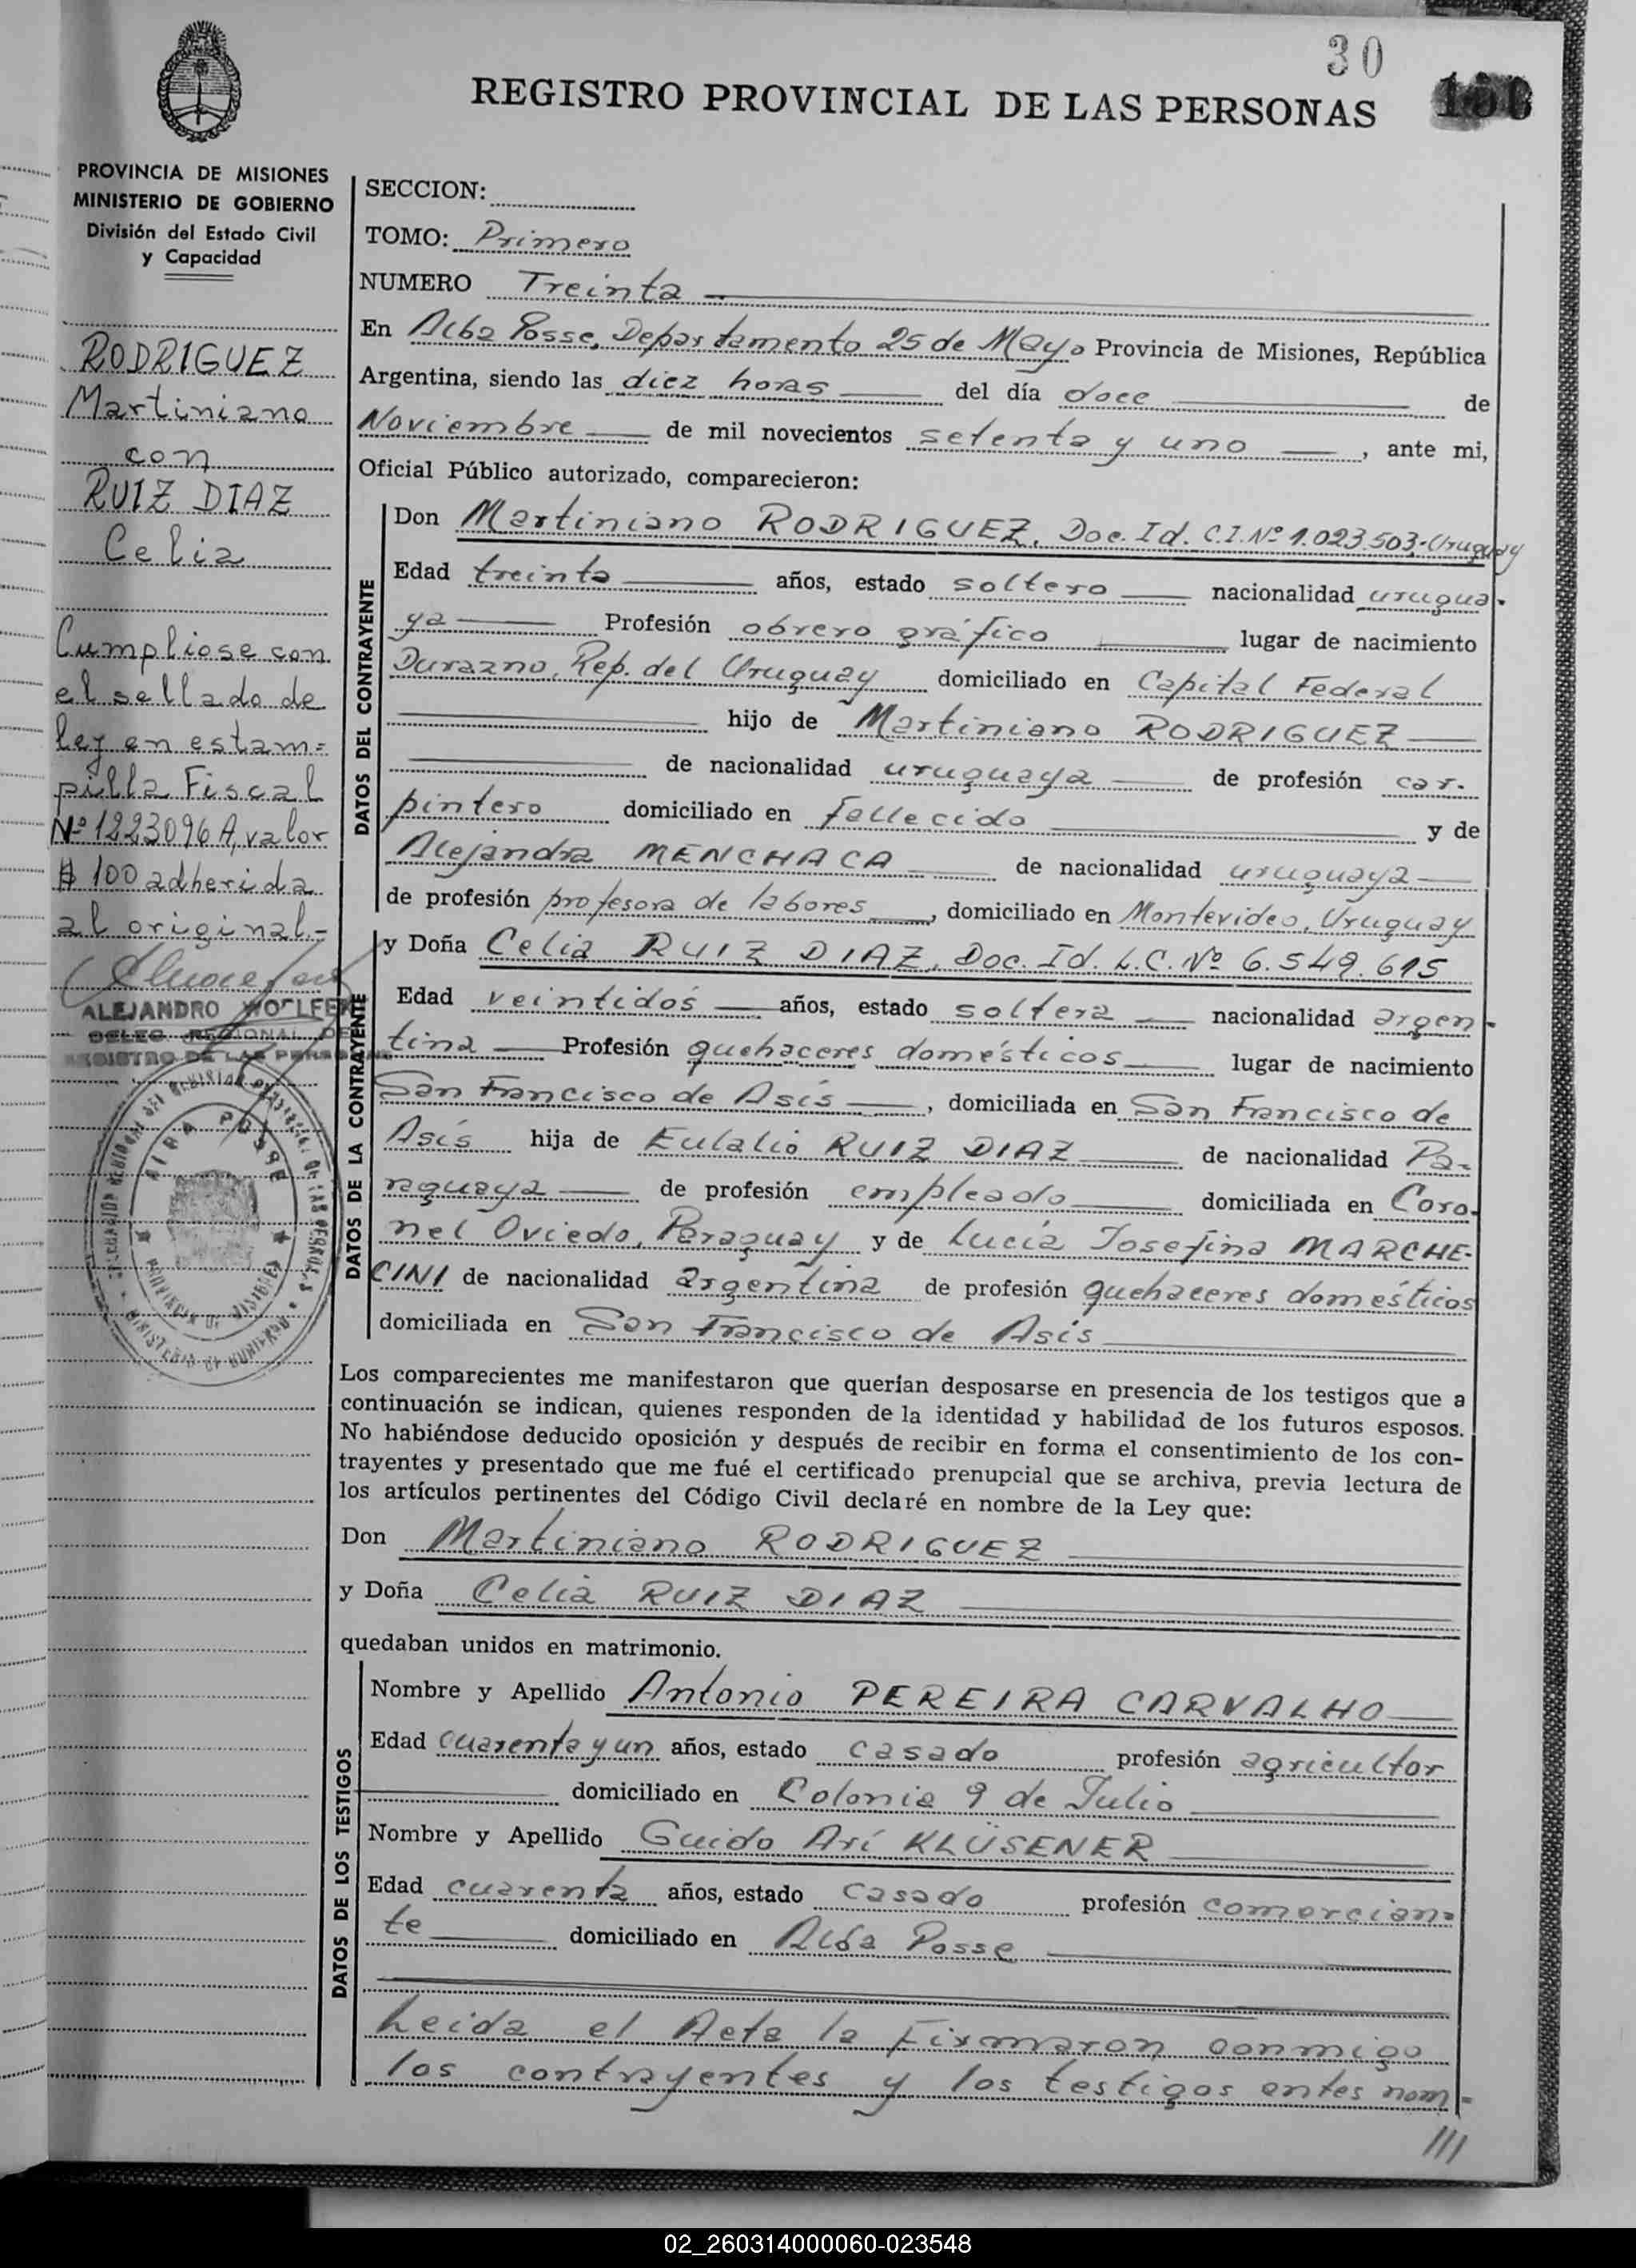 30
REGISTRO PROVINCIAL DE LAS PERSONAS
PROVINCIA DE MISIONES
MINISTERIO DE GOBIERNO
División del Estado Civil
y Capacidad
RODRIGUEZ
Martiniano
con
RUIZ DIAZ
Celia
Cumpliose con
el sellado de
ley en estam=
pilla Fiscal
Nº 1223096 A, valor
$ 100 adherida
al original.-
ALEJANDRO
DELEG. REGIONAL DE
REGISTRO DE LAS PERSONAS
ALBA POSSE
PROVINCIA DE MISIONES
SECCION:
TOMO: Primero
NUMERO Treinta
En Alba Posse, Departamento 25 de Mayo Provincia de Misiones, República
Argentina, siendo las diez horas del día doce de
Noviembre de mil novecientos setenta y uno, ante mi,
Oficial Público autorizado, comparecieron:
DATOS DEL CONTRAYENTE
Don Martiniano RODRIGUEZ, Doc. Id. C.I. Nº 1.023.503,-Uruguay
Edad treinta años, estado soltero nacionalidad urugua-
ya Profesión obrero gráfico lugar de nacimiento
Durazno, Rep. del Uruguay domiciliado en Capital Federal
hijo de Martiniano RODRIGUEZ
de nacionalidad uruguaya de profesión car-
pintero domiciliado en fallecido y de
Alejandra MENCHACA de nacionalidad uruguaya
de profesión profesora de labores, domiciliado en Montevideo, Uruguay
DATOS DE LA CONTRAYENTE
y Doña Celia RUIZ DIAZ, Doc. Id. L.C. Nº 6.549.615
Edad veintidós años, estado soltera nacionalidad argen-
tina Profesión quehaceres domésticos lugar de nacimiento
San Francisco de Asís, domiciliada en San Francisco de
Asís hija de Eulalio RUIZ DIAZ de nacionalidad Pa-
raguaya de profesión empleado domiciliada en Coro-
nel Oviedo, Paraguay y de Lucía Josefina MARCHE-
CINI de nacionalidad argentina de profesión quehaceres domésticos
domiciliada en San Francisco de Asís
Los comparecientes me manifestaron que querían desposarse en presencia de los testigos que a
continuación se indican, quienes responden de la identidad y habilidad de los futuros esposos.
No habiéndose deducido oposición y después de recibir en forma el consentimiento de los con-
trayentes y presentado que me fué el certificado prenupcial que se archiva, previa lectura de
los artículos pertinentes del Código Civil declaré en nombre de la Ley que:
Don Martiniano RODRIGUEZ
y Doña Celia RUIZ DIAZ
quedaban unidos en matrimonio.
DATOS DE LOS TESTIGOS
Nombre y Apellido Antonio PEREIRA CARVALHO
Edad cuarenta y un años, estado casado profesión agricultor
domiciliado en Colonia 9 de Julio
Nombre y Apellido Guido Arí KLÜSENER
Edad cuarenta años, estado casado profesión comercian-
te domiciliado en Alba Posse
Leida el Acta la firmaron conmigo
los contrayentes y los testigos antes nom-
///
02_260314000060-023548